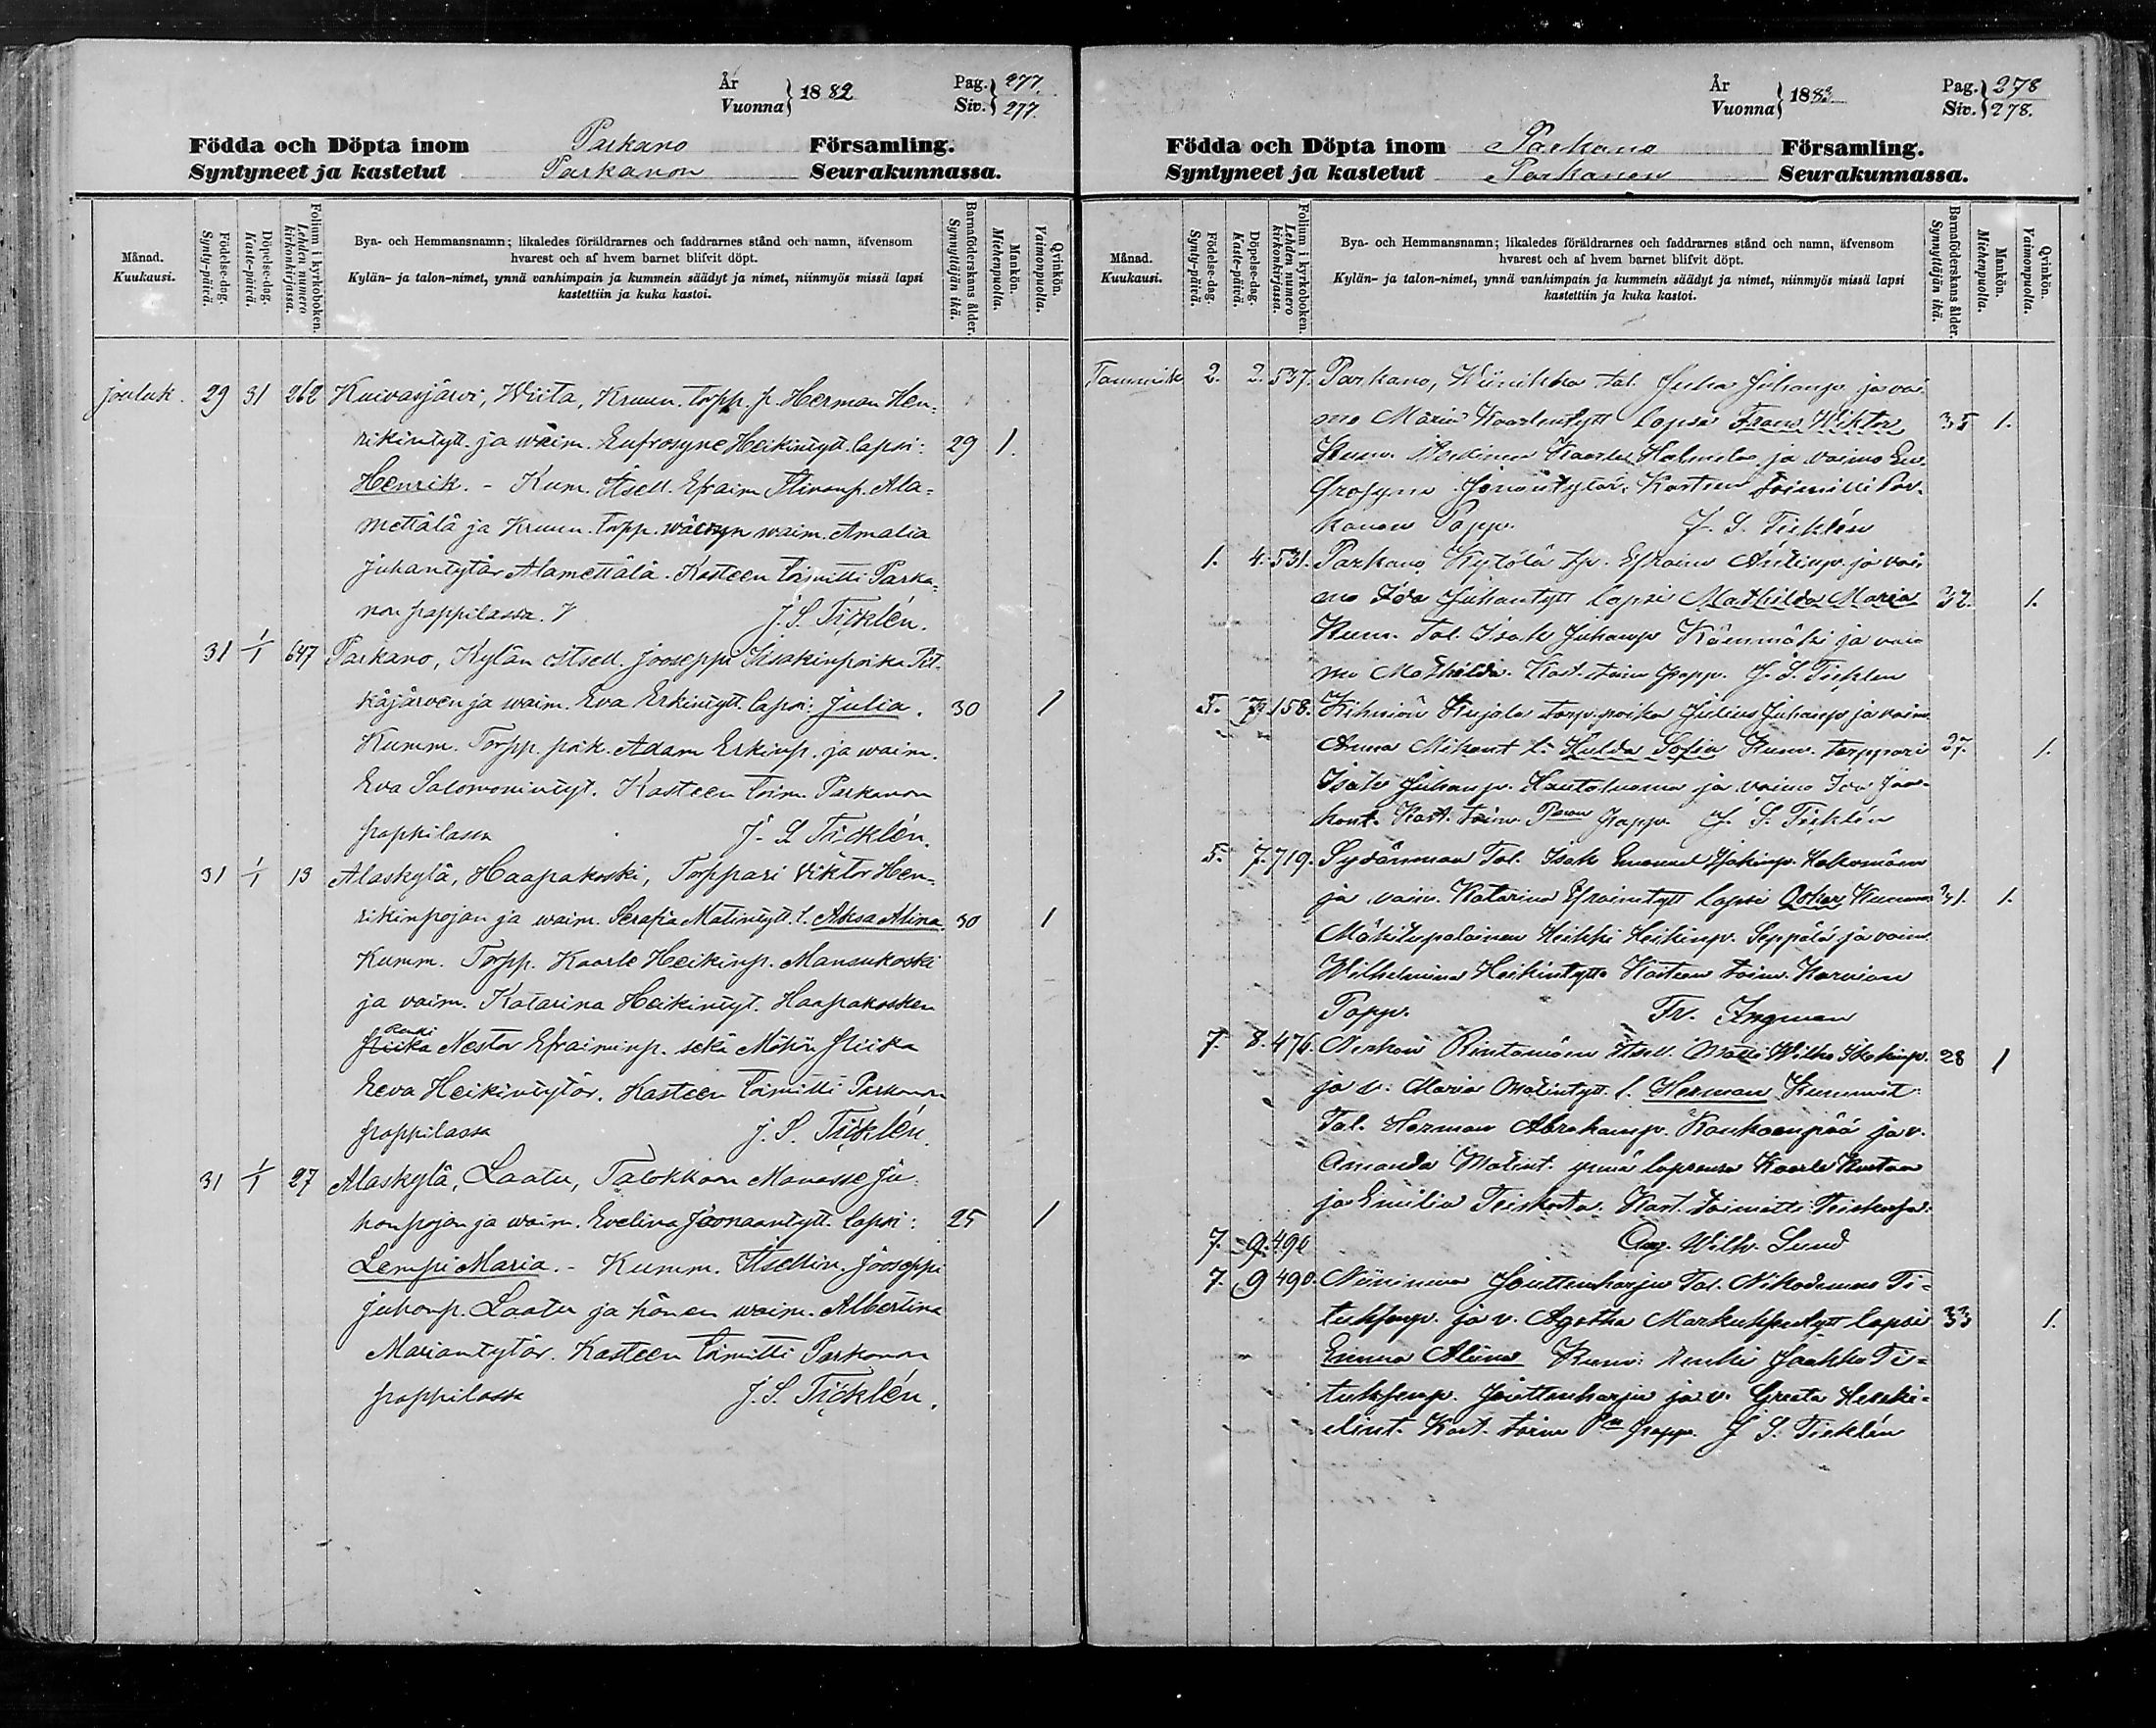 År
Vuonna } 1882
Pag. 277.
Siv. 277.
Födda och Döpta inom Parkano Församling.
Syntyneet ja kastetut Parkanon Seurakunnassa.
Månad.
Kuukausi.
Födelse-dag.
Synty-päivä.
Döpelse-dag.
Kaste-päivä.
Folium i kyrkoboken.
Lehden numero kirkonkirjassa.
Bya- och Hemmansnamn; likaledes föräldrarnes och faddrarnes stånd och namn, äfvensom
hvarest och af hvem barnet blifvit döpt.
Kylän- ja talon-nimet, ynnä vanhimpain ja kummein säädyt ja nimet, niinmyös missä lapsi
kastettiin ja kuka kastoi.
Barnaföderskans ålder.
Synnyttäjän ikä.
Mankön.
Miehenpuolta.
Qvinkön.
Vaimonpuolta.
Jouluk. 29 31 262 Kuivasjärvi, Wiita, Kruun. torpp. p. Herman Hen-
rikintytt. ja waim. Eufrosyne Heikintytt. lapsi: 29 1.
Henrik. - Kum. Itsell. Efraim Ala-
mettälä ja Kruun. torpp. waim. Amalia
Juhantytär Alamettälä. Kasteen toimitti Parka-
non pappilassa. J. S. Ticklén.
31 1/1 647 Parkano, Kylän Itsell. Jooseppi Iisakinpoika Pit-
käjärven ja waim. Eva Erkintytt. lapsi: Julia. 30 1
Kumm. Torpp. poik. Adam Erkinp. ja waim.
Eva Salomonintyt. Kasteen toim. Parkanon
pappilassa J. S. Ticklén.
31 1/1 13 Alaskylä, Haapakoski, Torppari Viktor Hen-
rikinpojan ja waim. Serafia Matintytt. l. Aksa Alina. 30 1
Kumm. Torpp. Kaarle Heikinp. Mansukoski
ja vaim. Katarina Heikintyt. Haapakosken
Renki
Piika Nestor Efraiminp. sekä Mökin Piika
Eeva Heikintytär. Kasteen toimitti Parkanon
pappilassa J. S. Ticklén.
31 1/1 27 Alaskylä, Laatu, Talokkaan Manasse Ju-
honpojan ja waim. Evelina Joonaantytt. lapsi: 25 1
Lempi Maria. - Kumm. Itsellin. Jooseppi
Juhonp. Laatu ja hänen waim. Albertina
Mariantytär. Kasteen toimitti Parkanon
pappilassa J. S. Ticklén.
År
Vuonna } 1883
Pag. 278
Siv. 278.
Födda och Döpta inom Parkano Församling.
Syntyneet ja kastetut Parkanon Seurakunnassa.
Månad.
Kuukausi.
Födelse-dag.
Synty-päivä.
Döpelse-dag.
Kaste-päivä.
Folium i kyrkoboken.
Lehden numero kirkonkirjassa.
Bya- och Hemmansnamn; likaledes föräldrarnes och faddrarnes stånd och namn, äfvensom
hvarest och af hvem barnet blifvit döpt.
Kylän- ja talon-nimet, ynnä vanhimpain ja kummein säädyt ja nimet, niinmyös missä lapsi
kastettiin ja kuka kastoi.
Barnaföderskans ålder.
Synnyttäjän ikä.
Mankön.
Miehenpuolta.
Qvinkön.
Vaimonpuolta.
Tammik. 2. 2. 537. Parkano, Wiinikka tal. Juha Juhanp. ja vai-
mo Maria Kaarlentytt lapsi Frans Wiktor 35 1.
Kum. Kaarle Halmela ja vaimo Eu-
frosyna Kasteen toimitti Par-
kanon Papp. J. S. Ticklén
1. 4. 531. Parkano, Kytölä tp. Efraim Antinp. ja vai-
mo Ida Juhantytt lapsi Mathilda Maria 32. 1.
Kum. Tal. Isak Juhanp Kämmäki ja vai-
mo Mathilda. Kast. toim papp. J. S. Ticklén
5. 7. 158. Kihniön Kujala torp. poika Julius Juhanp ja vaim
Anna Mikont l. Hulda Sofia Kum. torppari 37. 1.
Isak Juhanp. Kautoluoma ja vaimo Ida Jaa-
kont. Kast. toim. Papp. J. S. Ticklén
5. 7. 719. Sydänmaa Tal. Isak Emanuel
ja vaim. Katarina Efraimtytt lapsi Oskar Kumm 31. 1.
Mäkitupalainen Heikki Heikinp. Seppälä ja vaim
Wilhelmina Heikintytt. Kasteen toim. Karvian
Papp. Fr. Ingman
7. 8. 476. Nerkoo Rintamäen Itsell. Matti Wilho 28 1
ja v. Maria Matintytt. l. Herman Kummit.
Tal. Herman Abrahamp. Kankaanpää ja v.
Amanda Matint. ynnä Kaarle Kustaa
ja Emilia Kast. toimitti
7. 9. 490 Aug. Wilh. Lund
7. 9 490. Niinimaa Jouttenharju Tal. Nikodemus Ti-
tuksenp. ja v. Agatha Markuksentytt lapsi 33 1.
Emma Alina Kum: renki Jaakko Ti-
tuksenp. Jouttenharju ja v. Greeta Heseki-
elint. Kast. toim Pn papp. J. S. Ticklén